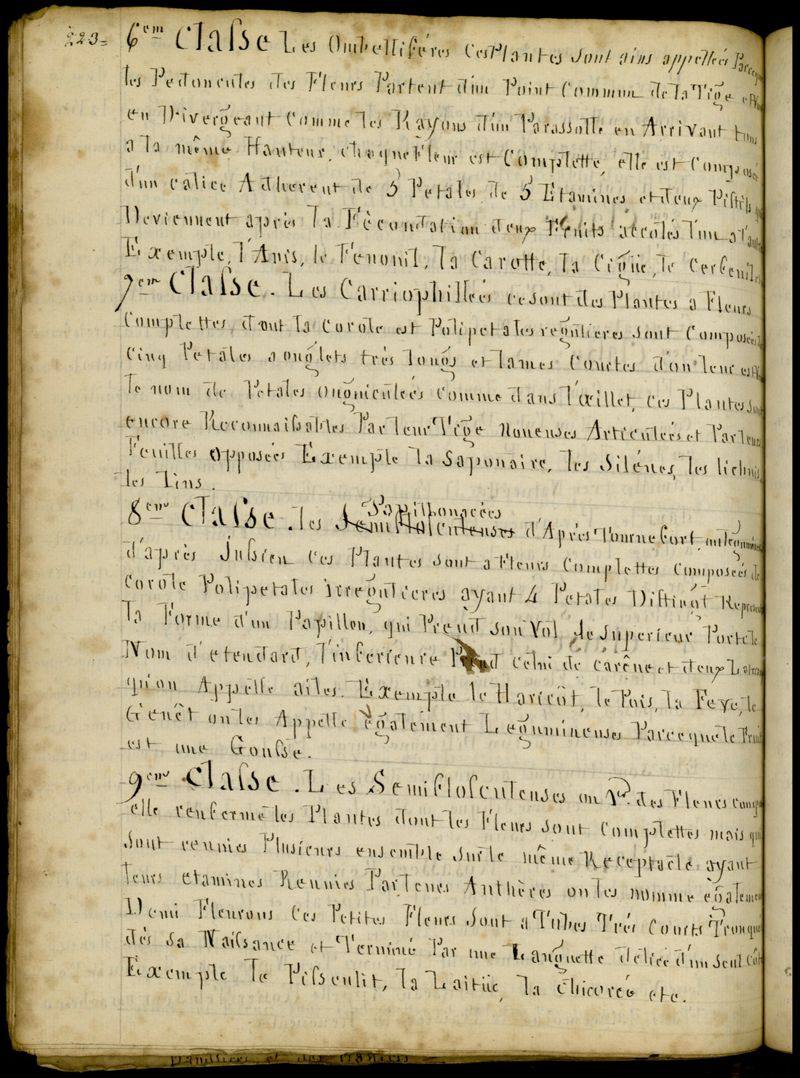 223=
6em Classe Les Ombellifères Ces Plantes sont ains appellées Parce
les Pedoncules des Fleurs Partent d'un Point Commun de la Tige
en Divergeant Comme les Rayons d'un Parassolle en Arrivant tous
a la même Hauteur, chaque Fleur est Complette, elle est Composée
d'un calice Adherent de 5 Petales de 5 Etamines et deux Pistils
Deviennent après la Fécondation deux Fruits accolés l'un a l'autre
Exemple, l'Anis, le Fenouil, la Carotte, la Cigüe, le Cerfeuil
7em Classe. Les Carriophillées ce sont des Plantes a Fleurs
Complettes dont la Corole est Polipetales regulieres sont Composées
Cinq Petales a onglets très longs et lames Courtes d'on leur
le nom de Petales Onguiculées Comme dans l'œillet, ces Plantes sont
encore Reconnaissables Par leur Tige Noueuses Articulées et Par leurs
Feuilles opposées Exemple la Saponaire, les Silénes, les lichnis
les Lins.
8em Classe. les Papillonacées d'Après Tournefort
d'après Jusieu Ces Plantes sont a Fleurs Complettes Composées de
Corole Polipetales irregulieres ayant 4 Petales Distinct
la Forme d'un Papillon, qui Prend son Vol, le Superieur Porte le
Nom d'etendard, l'inferieure celui de carène et deux
qu'on Appelle ailes. Exemple le Haricôt, le Pois, la Feve, le
Genêt on les Appelle égalemient Legumineuses Parceque le Fruit
est une Gousse.
9em Classe. Les Semiflosculeuses ou P. des Fleurs
elle renferme les Plantes dont les Fleurs sont Complettes mais qui
sont reunies Plusieurs ensemble sur le même Receptacle ayant
leurs etamines Reunies Par leurs Anthères on les nomme egalement
Demi Fleurons Ces Petites Fleurs sont a Tubes Trés Courts Tronqué
dés sa Naissance et Terminé Par une Languette deliée d'un seul Côté
Exemple le Pissenlit, la Laitüe, la Chicorée etc.